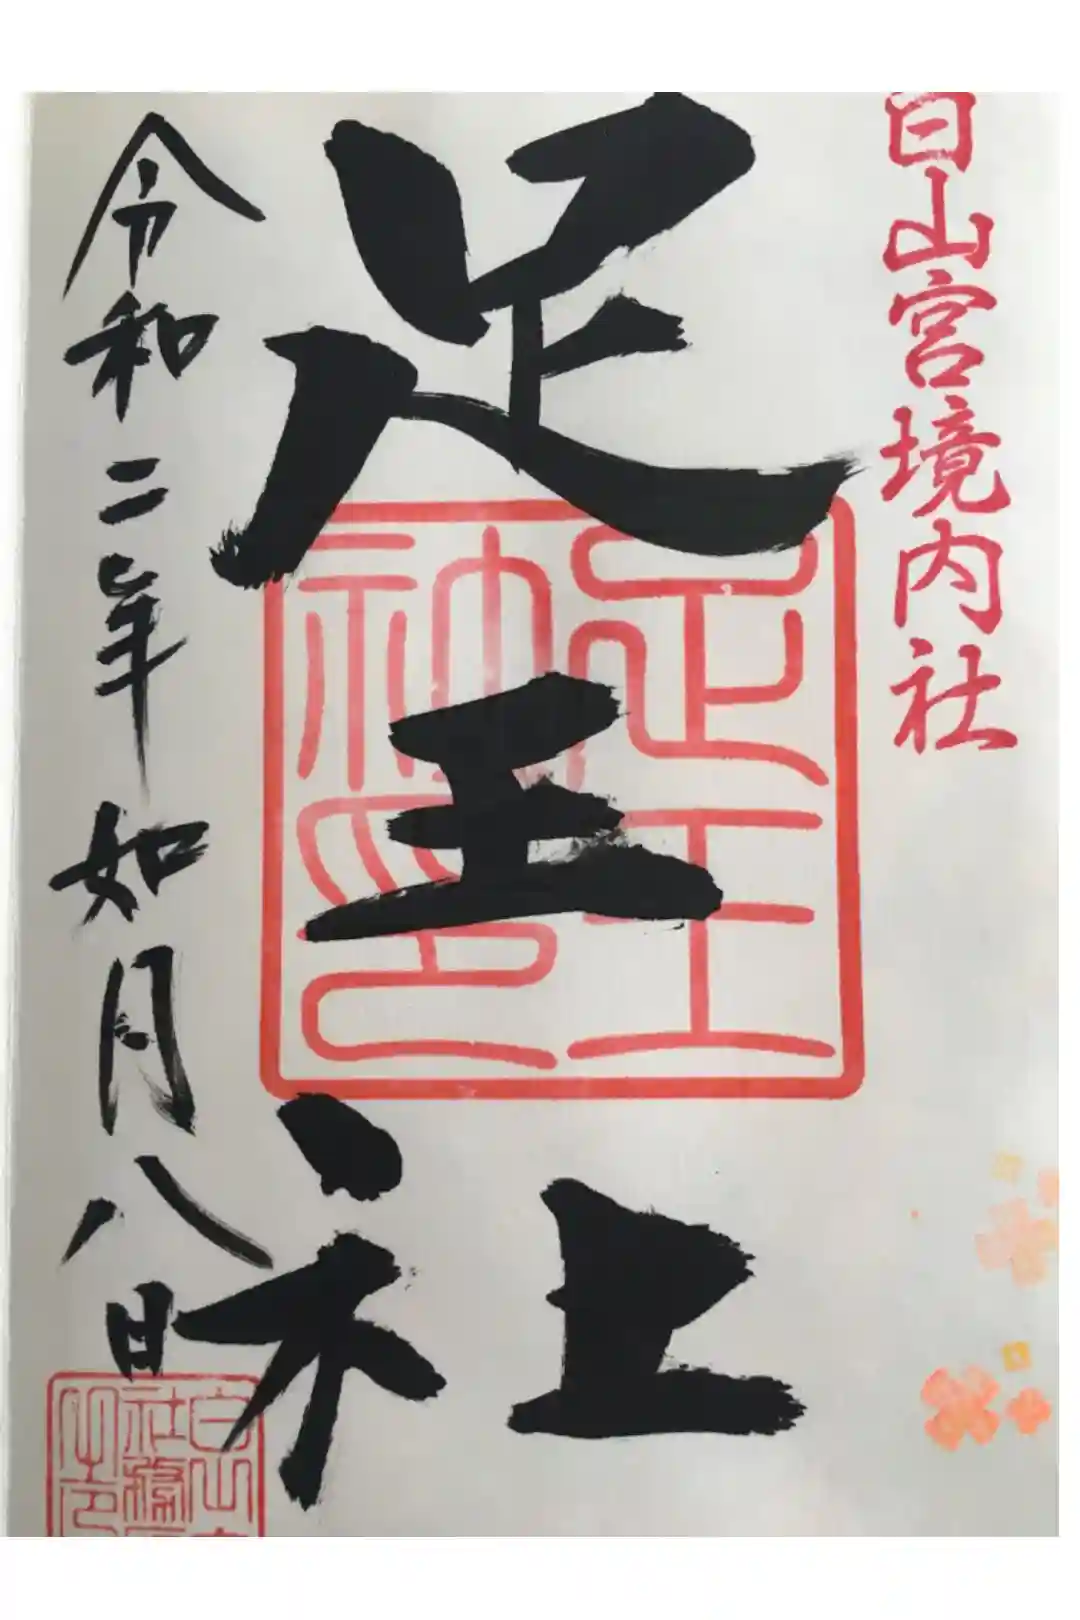 白山宮境内社
足王社
令和二年如月八日
足王
社印
白山
社務
之印